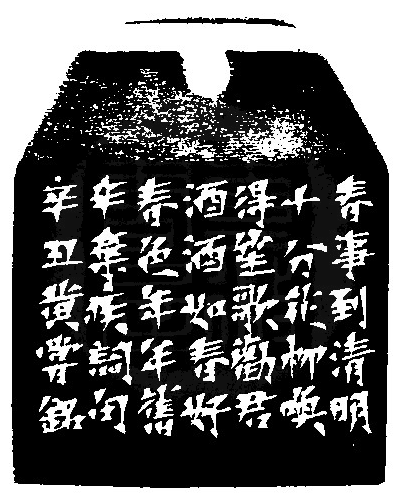 春事到清明
十分花柳喚
得笙歌勸君
酒酒如春好
春色年年舊
辛棄疾詞句
辛丑黃嘗銘